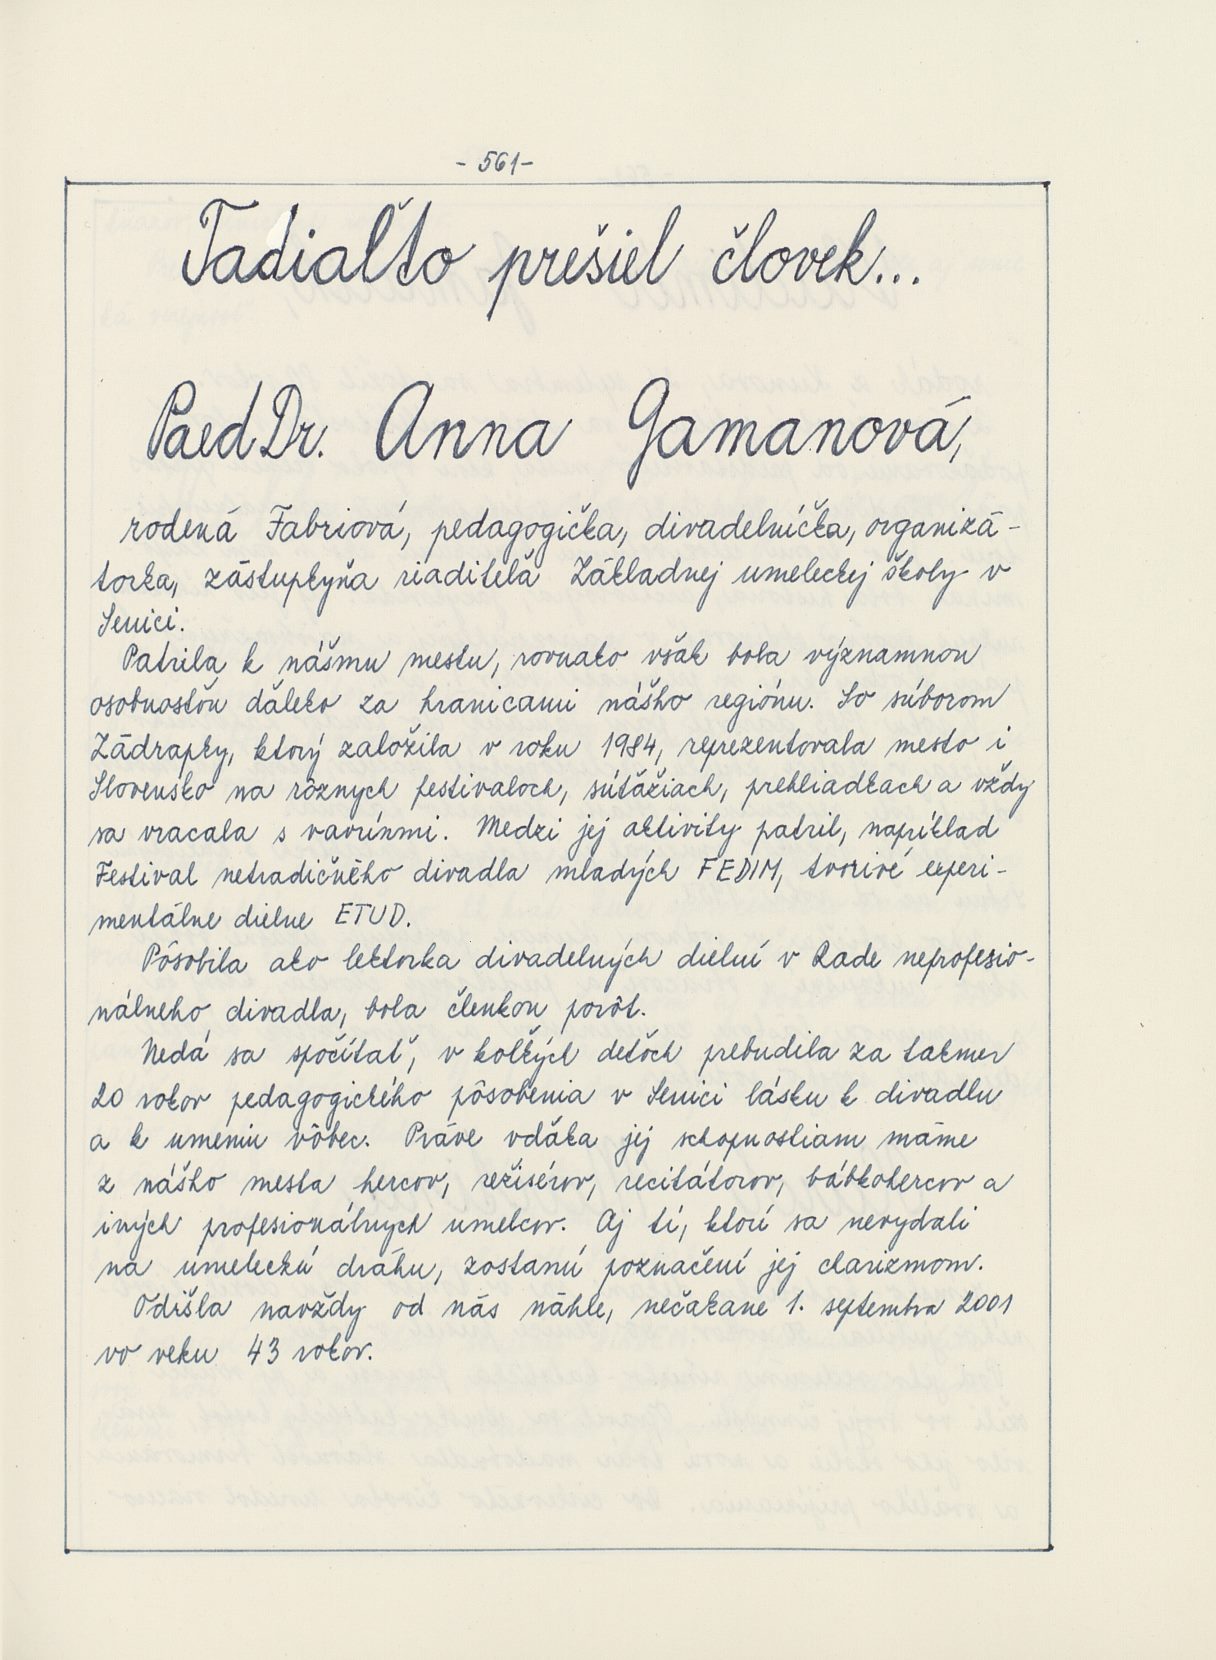 - 561 -
Tadiaľto prešiel človek...
PaedDr. Anna Gamanová,
rodená Fabriová, pedagogička, divadelníčka, organizá-
torka, zástupkyňa riaditeľa Základnej umeleckej školy v
Senici.
Patrila k nášmu mestu, rovnako však bola významnou
osobnosťou ďaleko za hranicami nášho regiónu. So súborom
Zádrapky, ktorý založila v roku 1984, reprezentovala mesto i
Slovensko na rôznych festivaloch, súťažiach, prehliadkach a vždy
sa vracala s vavrínmi. Medzi jej aktivity patril, napríklad
Festival netradičného divadla mladých FEDIM, tvorivé experi-
mentálne dielne ETUD.
Pôsobila ako lektorka divadelných dielní v Rade neprofesio-
nálneho divadla, bola členkou porôt.
Nedá sa spočítať, v koľkých deťoch prebudila za takmer
20 rokov pedagogického pôsobenia v Senici lásku k divadlu
a k umeniu vôbec. Práve vďaka jej schopnostiam máme
z nášho mesta hercov, režisérov, recitátorov, bábkohercov a
iných profesionálnych umelcov. Aj tí, ktorí sa nevydali
na umeleckú dráhu, zostanú poznačení jej charizmom.
Odišla navždy od nás náhle, nečakane 1. septembra 2001
vo veku 43 rokov.